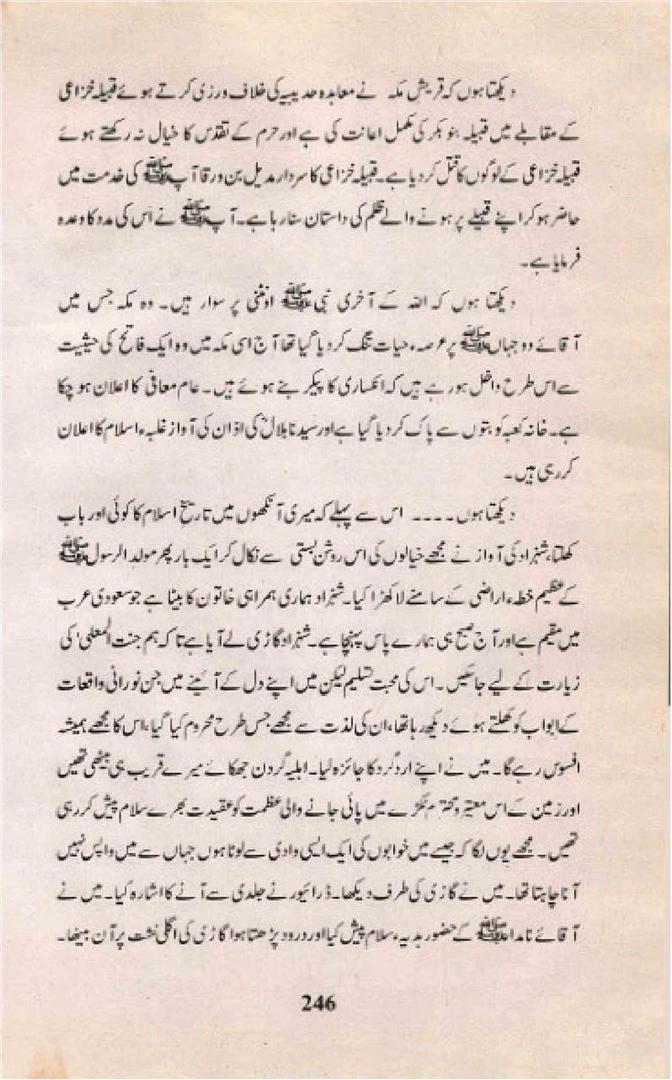 دیکھتا ہوں کہ قریش مکہ نے معاہدہ حدیبیہ کی خلاف ورزی کرتے ہوئے قبیلہ خزاعی
کے مقابلے میں قبیلہ بنو بکر کی مکمل اعانت کی ہے اور حرم کے تقدس کا خیال نہ رکھتے ہوئے
قبیلہ خزاعی کے لوگوں کا قتل کر دیا ہے۔ قبیلہ خزاعی کا سردار مدیل بن ورقا آپ ﷺ کی خدمت میں
حاضر ہو کر اپنے قبیلے پر ہونے والے ظلم کی داستان سنا رہا ہے۔ آپ ﷺ نے اس کی مدد کا وعدہ
فرمایا ہے۔
دیکھتا ہوں کہ اللہ کے آخری نبی ﷺ اونٹنی پر سوار ہیں۔ وہ مکہ جس میں
آقائے دو جہاں ﷺ پر عرصہء حیات تنگ کر دیا گیا تھا آج اسی مکہ میں وہ ایک فاتح کی حیثیت
سے اس طرح داخل ہو رہے ہیں کہ انکساری کا پیکر بنے ہوئے ہیں۔ عام معافی کا اعلان ہو چکا
ہے۔ خانہ کعبہ کو بتوں سے پاک کر دیا گیا ہے اور سیدنا بلالؓ کی اذان کی آواز غلبہء اسلام کا اعلان
کر رہی ہیں۔
دیکھتا ہوں۔۔۔۔ اس سے پہلے کہ میری آنکھوں میں تاریخ اسلام کا کوئی اور باب
کھلتا، شہزاد کی آواز نے مجھے خیالوں کی اس روشن بستی سے نکال کر ایک بار پھر مولد الرسول ﷺ
کے عظیم خطہء اراضی کے سامنے لا کھڑا کیا۔ شہزاد ہماری ہمراہی خاتون کا بیٹا ہے جو سعودی عرب
میں مقیم ہے اور آج صبح ہی ہمارے پاس پہنچا ہے۔ شہزاد گاڑی لے آیا ہے تا کہ ہم جنت المعلیٰ کی
زیارت کے لیے جا سکیں۔ اس کی محبت تسلیم لیکن میں اپنے دل کے آئینے میں جن نورانی واقعات
کے ابواب کو کھلتے ہوئے دیکھ رہا تھا، ان کی لذت سے مجھے جس طرح محروم کیا گیا، اس کا مجھے ہمیشہ
افسوس رہے گا۔ میں نے اپنے ارد گرد کا جائزہ لیا۔ اہلیہ گردن جھکائے میرے قریب ہی بیٹھی تھیں
اور زمین کے اس معتبر و محترم ٹکڑے میں پائی جانے والی عظمت کو عقیدت بھرے سلام پیش کر رہی
تھیں۔ مجھے یوں لگا کہ جیسے میں خوابوں کی ایک ایسی وادی سے لوٹا ہوں جہاں سے میں واپس نہیں
آنا چاہتا تھا۔ میں نے گاڑی کی طرف دیکھا۔ ڈرائیور نے جلدی سے آنے کا اشارہ کیا۔ میں نے
آقائے نامدار ﷺ کے حضور ہدیہء سلام پیش کیا اور درود پڑھتا ہوا گاڑی کی اگلی نشت پر آن بیٹھا۔
246